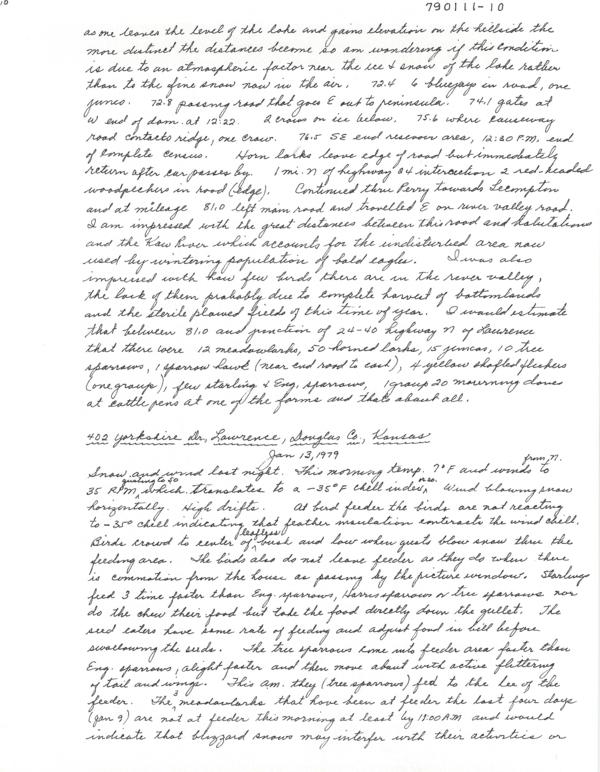 790111-10
as one leaves the level of the lake and gains elevation on the hillside the
more distinct the distances become so am wondering if this condition
is due to an atmospheric factor near the ice & snow of the lake rather
than to the fine snow now in the air. 72.4 6 bluejays in road, one
junco. 72.8 passing road that goes E out to peninsula. 74.1 gates at
W end of dam at 12:22. 2 crows on ice below. 75.6 where causeway
road contacts ridge, one crow. 76.5 SE end reservoir area, 12:30 P.M. end
of complete census. Horn larks leave edge of road but immediately
return after car passes by. 1 mi. N of highway 24 intersection 2 red-headed
woodpeckers in wood (edge). Continued thru Perry towards Lecompton
and at mileage 81.0 left main road and travelled E on river valley road.
I am impressed with the great distances between this road and habitations
and the Kaw River which accounts for the undisturbed area now
used by wintering population of bald eagles. I was also
impressed with how few birds there are in the river valley,
the lack of them probably due to complete harvest of bottomlands
and the sterile plowed fields of this time of year. I would estimate
that between 81.0 and junction of 24-40 highway N of Lawrence
that there were 12 meadowlarks, 50 horned larks, 15 juncos, 10 tree
sparrows, 1 sparrow hawk (near end road to east), 4 yellow shafted flickers
(one group), few starling & Eng. sparrows, 1 group 20 mourning doves
at cattle pens at one of the farms and thats about all.
402 Yorkshire Dr, Lawrence, Douglas Co., Kansas
Jan 13, 1979
Snow and wind last night. This morning temp. 7°F and winds from N. to
35 gusting to 50 which translates to a -35°F chill index. Wind blowing snow
horizontally. High drifts. At bird feeder the birds are not reacting
to -35° chill indicating that feather insulation contrasts the wind chill.
Birds crowd to center of leafless bush and low when gusts blow snow thru the
feeding area. The birds also do not leave feeder as they do when there
is commotion from the house as passing by the picture window. Starlings
feed 3 time faster than Eng. sparrows, Harris sparrows or tree sparrows nor
do the chew their food but take the food directly down the gullet. The
seed eaters have same rate of feeding and adjust food in bill before
swallowing the seeds. The tree sparrows come into feeder area faster than
Eng. sparrows, alight faster and then move about with active fluttering
of tail and wings. This am. they (tree sparrows) fed to the lee of the
feeder. The 3 meadowlarks that have been at feeder the last four days
(Jan 9) are not at feeder this morning at least by 11:00 AM and would
indicate that blizzard snows may interfer with their activities or